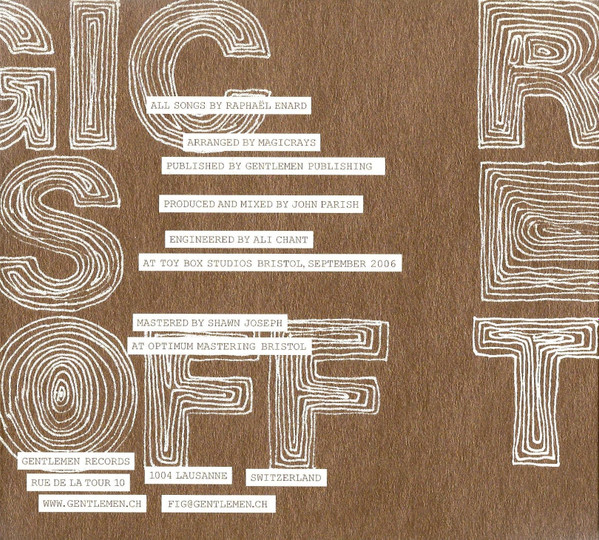 GIC R
ALL SONGS BY RAPHAËL ENARD
ARRANGED BY MAGICRAYS
PUBLISHED BY GENTLEMEN PUBLISHING
S E
PRODUCED AND MIXED BY JOHN PARISH
ENGINEERED BY ALI CHANT
AT TOY BOX STUDIOS BRISTOL, SEPTEMBER 2006
OFF T
MASTERED BY SHAWN JOSEPH
AT OPTIMUM MASTERING BRISTOL
GENTLEMEN RECORDS
RUE DE LA TOUR 10
1004 LAUSANNE
SWITZERLAND
WWW.GENTLEMEN.CH
FIG@GENTLEMEN.CH